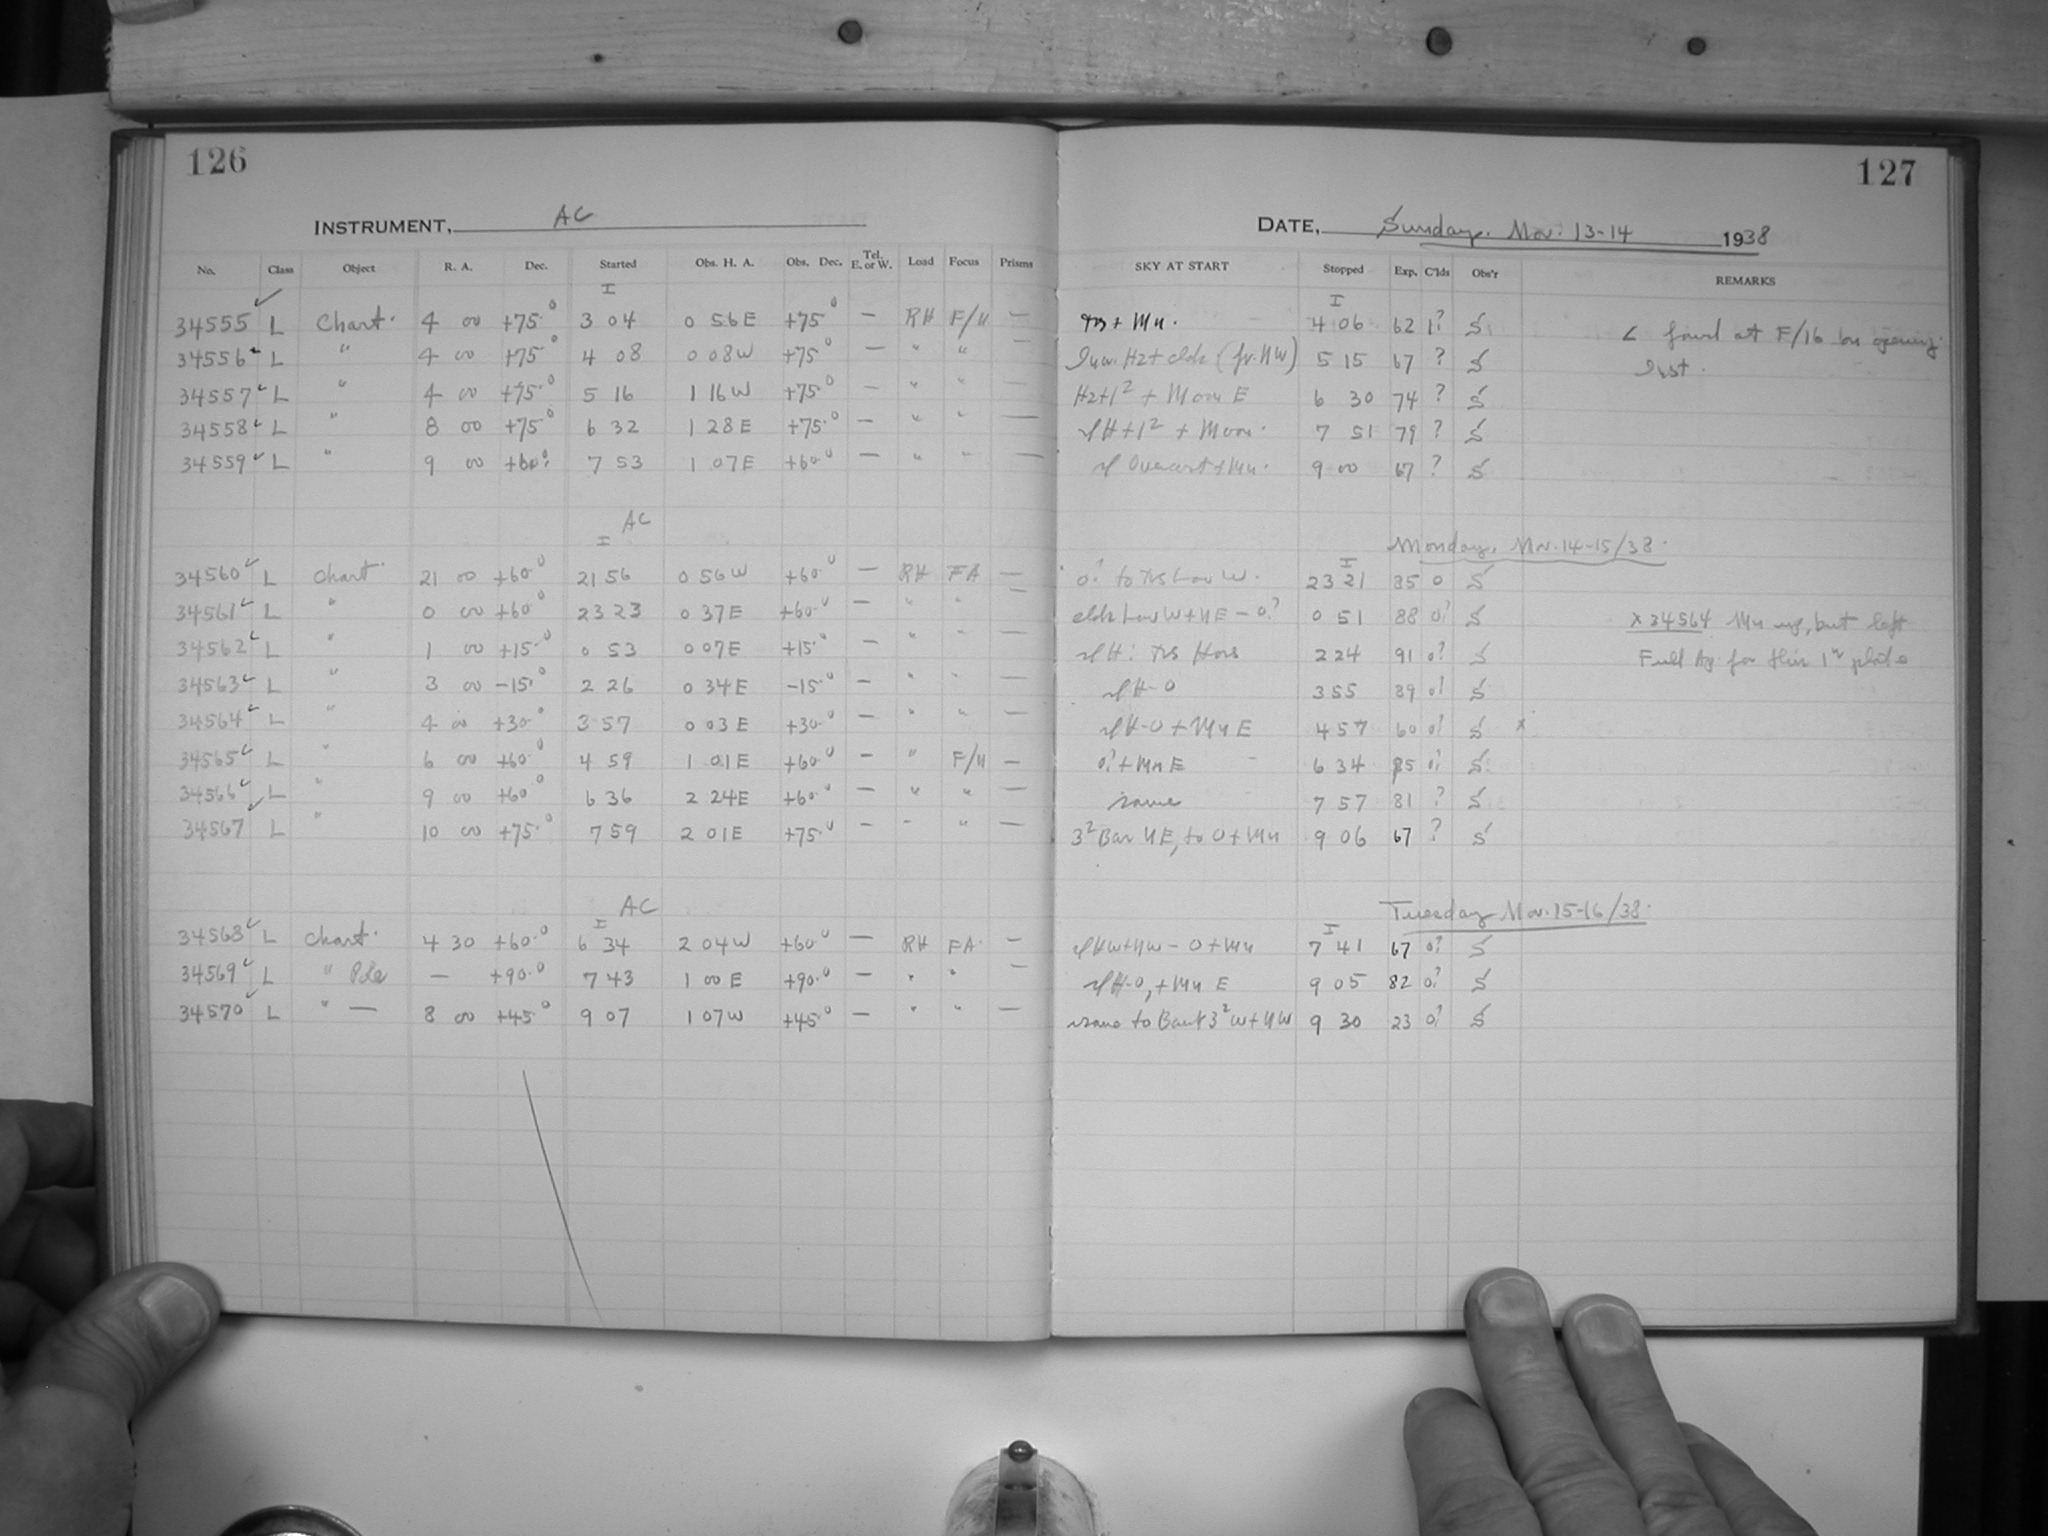 126
127
INSTRUMENT, AC
DATE, Sunday. Nov. 13-14 1938
No. Class Object R. A. Dec. Started Obs. H. A. Obs. Dec. Tel. E. or W. Load Focus Prisms SKY AT START Stopped Exp. C'lds Obs'r REMARKS
I I
34555 ✓ L Chart. 4 00 +75.° 3 04 0 56E +75° — RH F/11 — + Mn. 4 06 62 1? S < found at F/16 on opening
34556 ✓ L " 4 00 +75° 4 08 0 08W +75° — " " — Hz + clds (fr. NW) 5 15 67 ? S Inst.
34557 ✓ L " 4 00 +75.° 5 16 1 16W +75° — " " — Hz+1² + Moon E 6 30 74 ? S
34558 ✓ L " 8 00 +75° 6 32 1 28E +75.° — " " — H+1² + Moon. 7 51 79 ? S
34559 ✓ L " 9 00 +60° 7 53 1 07E +60° — " " — Overcast + Mn. 9 00 67 ? S
AC
I Monday, Nov. 14-15/38.
I
34560 ✓ L Chart 21 00 +60.° 21 56 0 56W +60.° — RH FA — 0? to Low W. 23 21 85 0 S
34561 ✓ L " 0 00 +60° 23 23 0 37E +60.° — " " — clds Low W + NE - 0? 0 51 88 0? S x 34564 Mn up, but left
34562 ✓ L " 1 00 +15.° 0 53 0 07E +15.° — " " — H: 2 24 91 0? S Full Ap. for this 1 plate
34563 ✓ L " 3 00 -15.° 2 26 0 34E -15.° — " " — H-0 3 55 89 0? S
34564 ✓ L " 4 00 +30.° 3 57 0 03E +30.° — " " — H-0 + Mn E 4 57 60 0? S x
34565 ✓ L " 6 00 +60.° 4 59 1 01E +60.° — " F/11 — 0? + Mn E 6 34 85 0? S
34566 ✓ L " 9 00 +60° 6 36 2 24E +60.° — " " — same 7 57 81 ? S
34567 ✓ L " 10 00 +75.° 7 59 2 01E +75.° — " " — 3² Bar NE, to 0 + Mn 9 06 67 ? S
AC
I Tuesday Nov. 15-16/38.
I
34568 ✓ L Chart. 4 30 +60.° 6 34 2 04W +60° — RH FA. — HW+NW - 0 + Mn 7 41 67 0? S
34569 ✓ L " Pole — +90.° 7 43 1 00 E +90.° — " " — H-0, + Mn E 9 05 82 0? S
34570 ✓ L " — 8 00 +45° 9 07 1 07W +45.° — " " — same to 3² W + NW 9 30 23 0? S